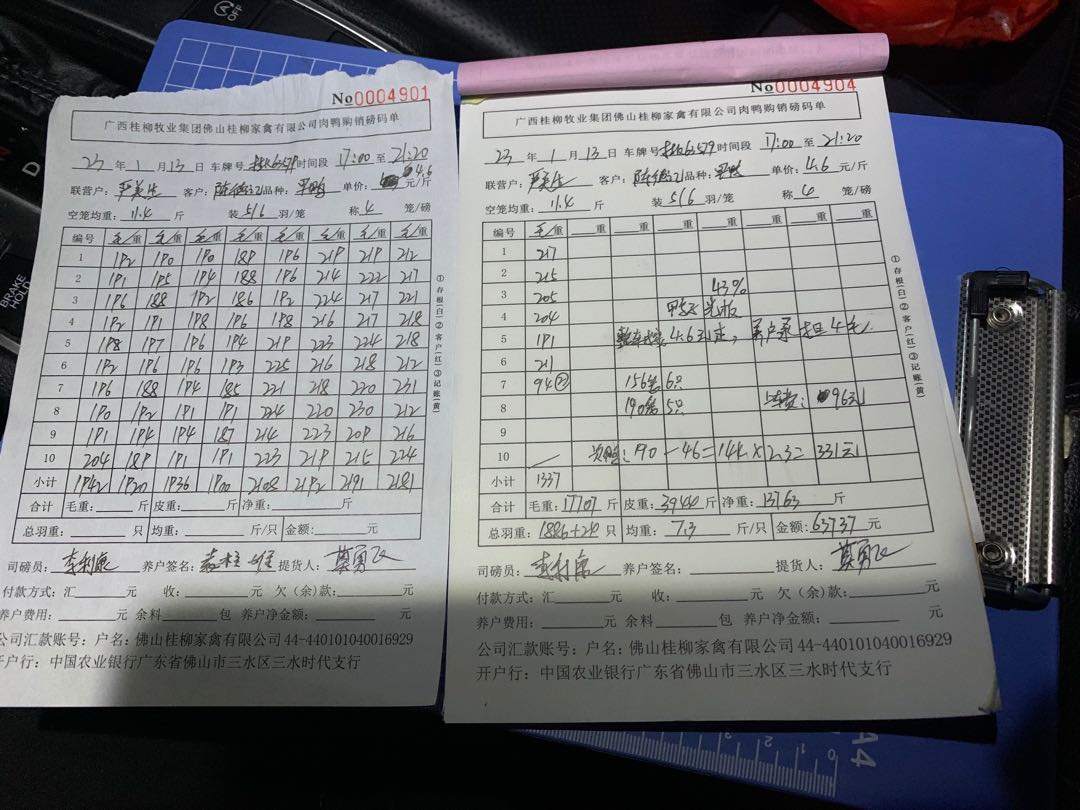 No 0004901
广西桂柳牧业集团佛山桂柳家禽有限公司肉鸭购销磅码单
23 年 1 月 13 日 车牌号 时间段 17:00 至 21:20
联营户: 严美生 客户: 品种: 单价: 4.6 元/斤
空笼均重: 11.4 斤 装 5/6 羽/笼 称 4 笼/磅
编号 毛/重 毛/重 毛/重 毛/重 毛/重 毛/重 毛/重 毛/重
1 192 190 190 189 196 219 219 212
2 191 195 194 188 196 214 222 217
3 196 188 192 186 192 224 217 221
4 192 191 198 196 198 216 217 218
5 198 197 196 194 219 223 224 218
6 192 196 196 193 225 216 218 212
7 196 188 194 185 221 218 220 231
8 190 192 191 191 224 220 230 212
9 191 194 194 187 214 223 209 216
10 204 189 191 191 223 219 215 224
小计 1942 1920 1936 1900 2108 2192 2191 2181
合计 毛重: 斤 皮重: 斤 净重: 斤
总羽重: 只 均重: 斤/只 金额: 元
司磅员: 李利康 养户签名: 提货人: 莫勇
付款方式: 汇 元 收: 元 欠(余)款: 元
养户费用: 元 余料 包 养户净金额: 元
公司汇款账号: 户名: 佛山桂柳家禽有限公司 44-440101040016929
开户行: 中国农业银行广东省佛山市三水区三水时代支行
①存根(白)②客户(红)③记账(黄)
No 0004904
广西桂柳牧业集团佛山桂柳家禽有限公司肉鸭购销磅码单
23 年 1 月 13 日 车牌号 时间段 17:00 至 21:20
联营户: 严美生 客户: 品种: 单价: 4.6 元/斤
空笼均重: 11.4 斤 装 5/6 羽/笼 称 4 笼/磅
编号 毛/重 重 重 重 重 重 重 重
1 217
2 215
3 205 43%
4 204
5 191 4.6
6 211
7 94② 156笼 6只
8 190笼 5只 96元
9
10 190-46=144×2.3=331元
小计 1337
合计 毛重: 17707 斤 皮重: 3944 斤 净重: 13763 斤
总羽重: 1886+24 只 均重: 7.3 斤/只 金额: 63737 元
司磅员: 李利康 养户签名: 提货人: 莫勇
付款方式: 汇 元 收: 元 欠(余)款: 元
养户费用: 元 余料 包 养户净金额: 元
公司汇款账号: 户名: 佛山桂柳家禽有限公司 44-440101040016929
开户行: 中国农业银行广东省佛山市三水区三水时代支行
①存根(白)②客户(红)③记账(黄)
OFF
D
BRAKE
HOLD
A4
3 2 1 0